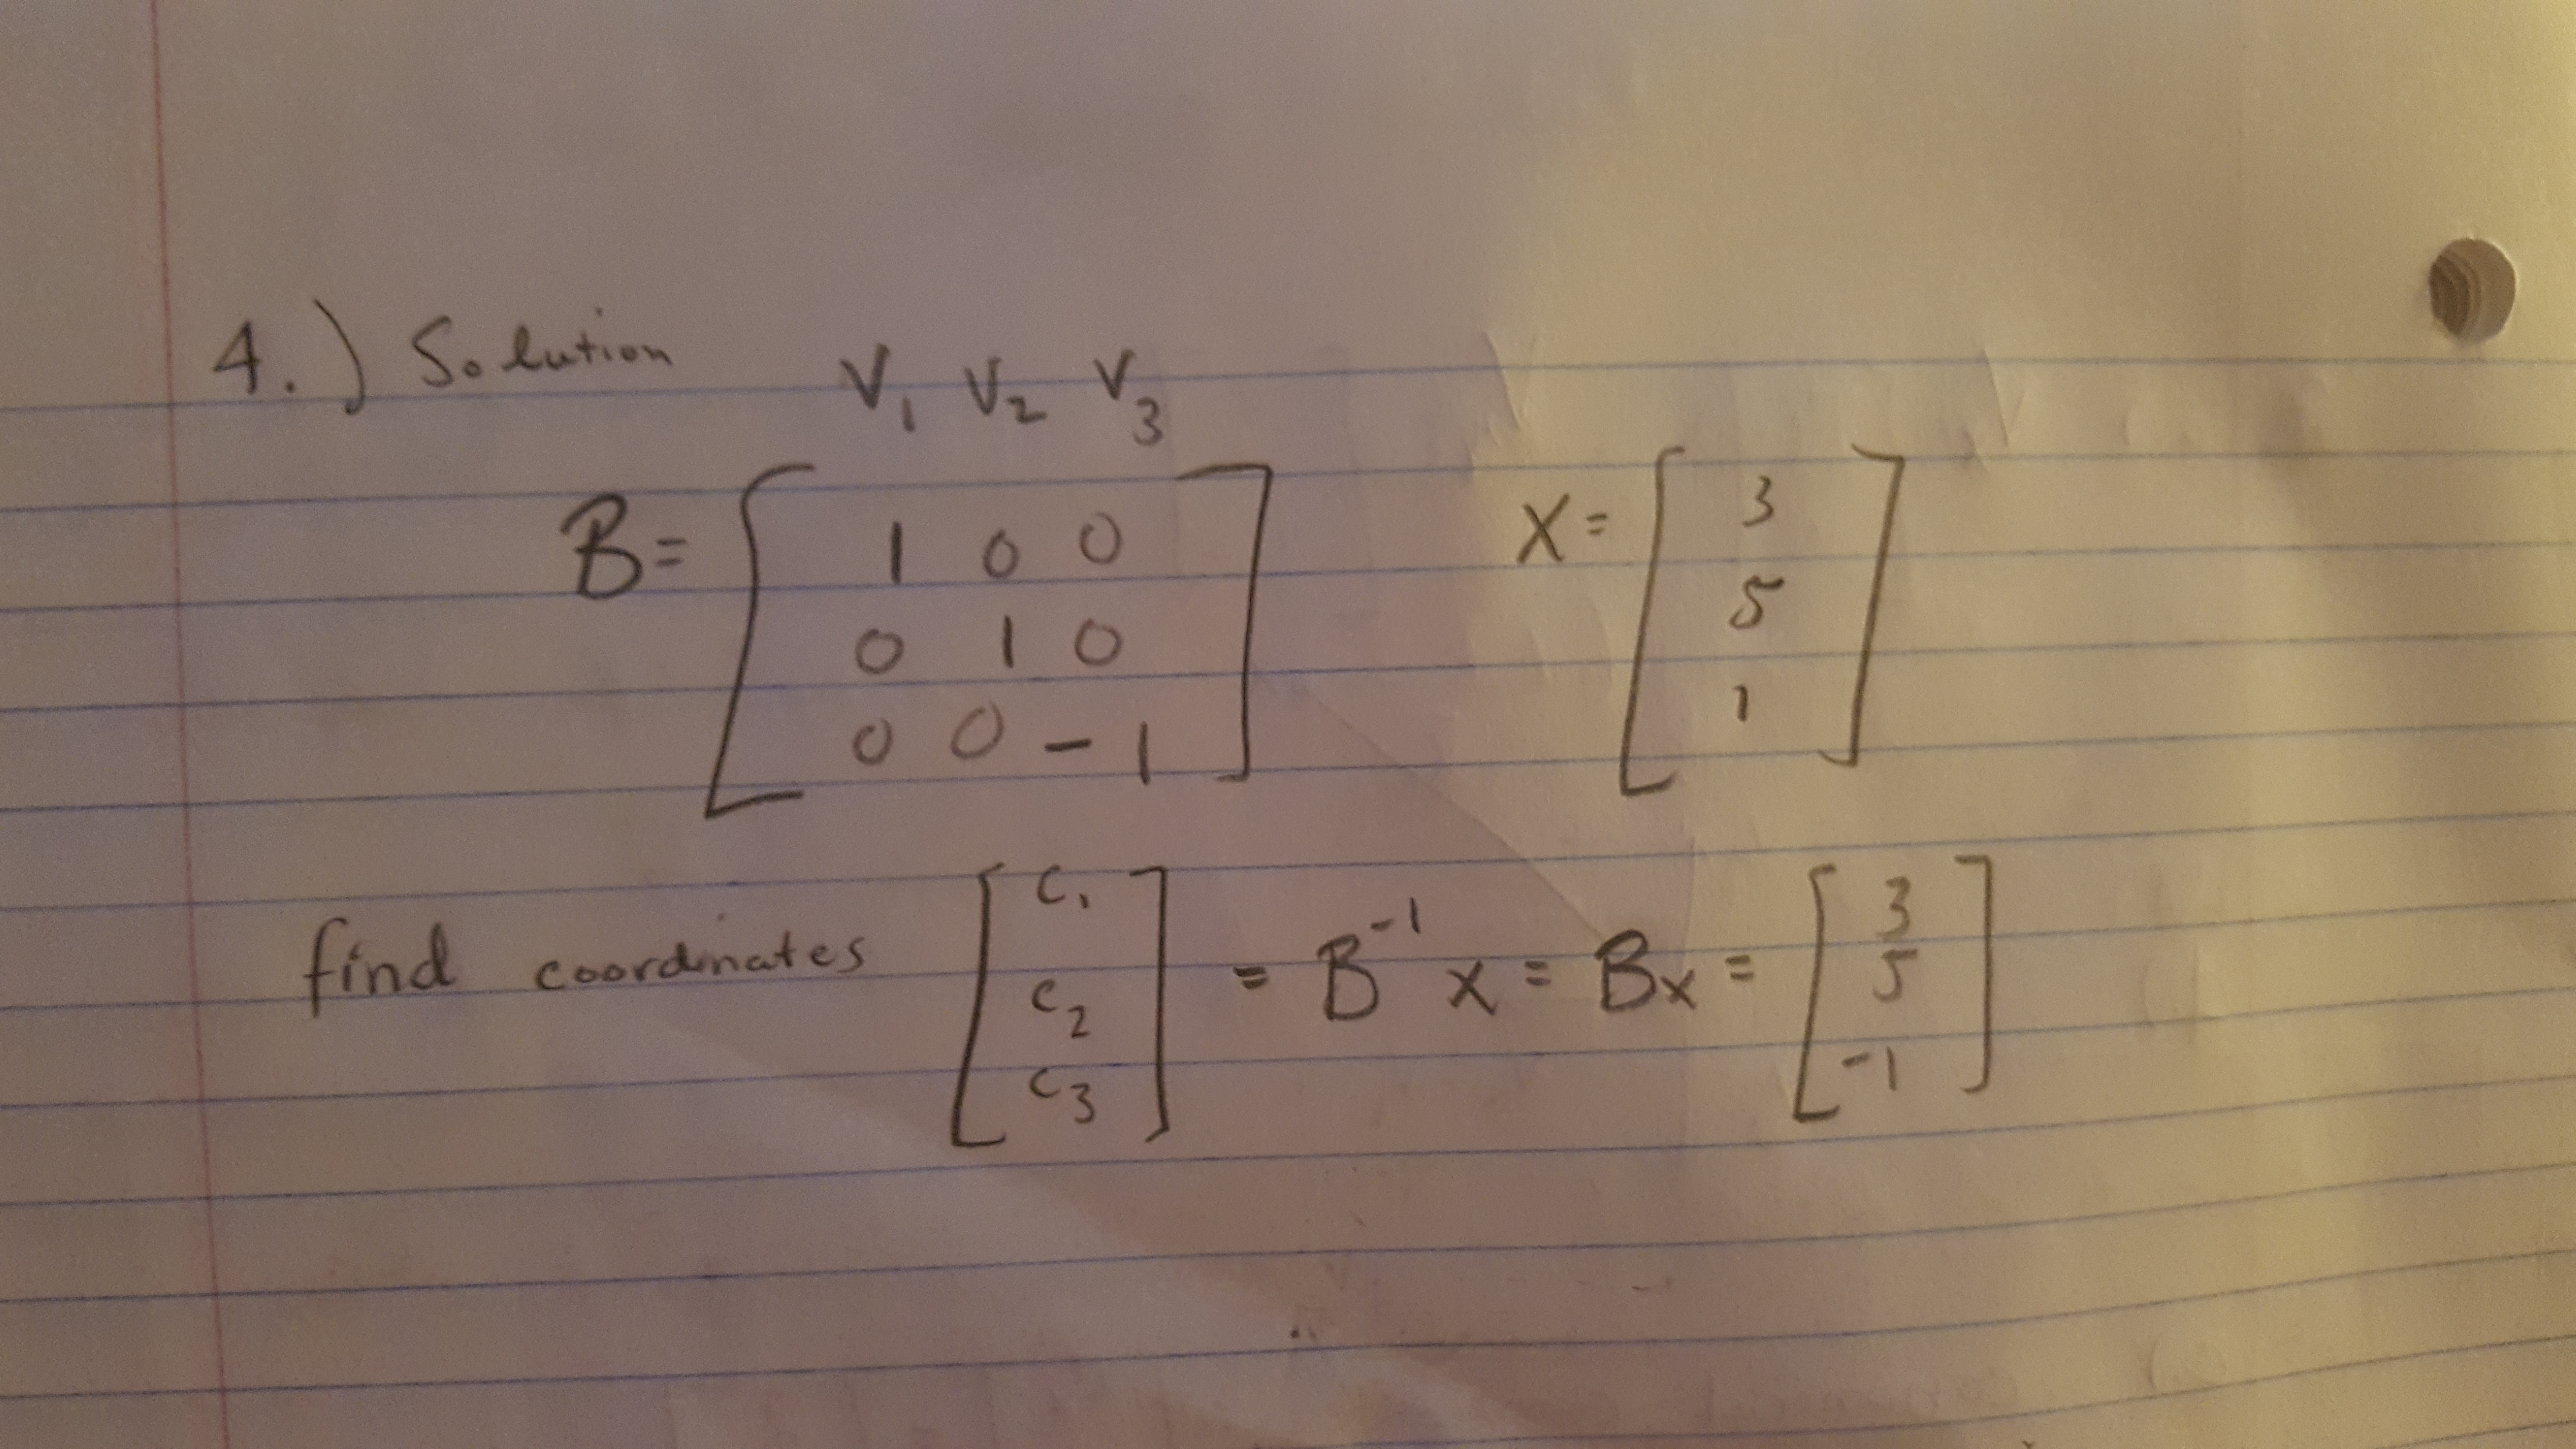 4.) Solution
V1 V2 V3
B= [ 1 0 0 X= [ 3
0 1 0 5
0 0 -1 ] 1 ]
find coordinates [ C1 C2 C3 ] = B^-1 x = Bx = [ 3 5 -1 ]